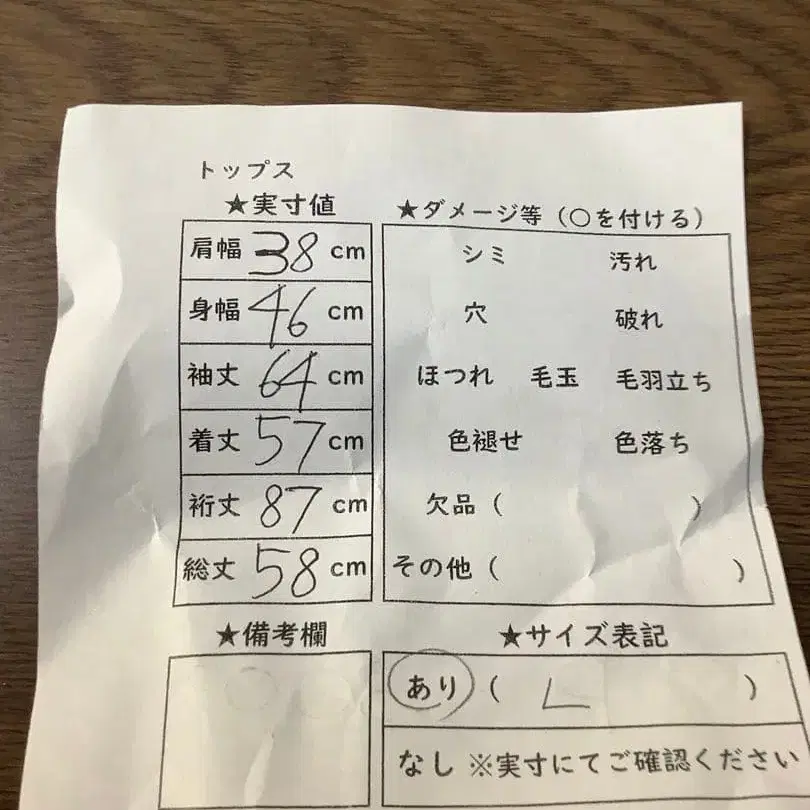 トップス
★実寸値
肩幅 38 cm
身幅 46 cm
袖丈 64 cm
着丈 57 cm
裄丈 87 cm
総丈 58 cm
★ダメージ等（○を付ける）
シミ 汚れ
穴 破れ
ほつれ 毛玉 毛羽立ち
色褪せ 色落ち
欠品（ ）
その他（ ）
★備考欄
★サイズ表記
あり（ L ）
なし ※実寸にてご確認ください